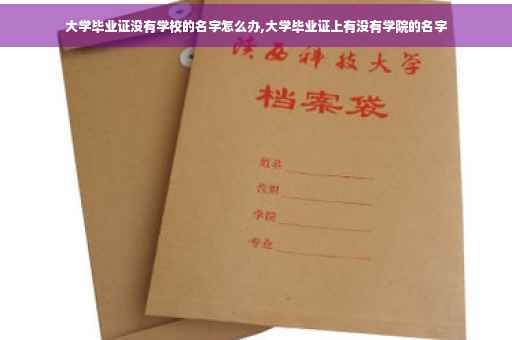 大学毕业证没有学校的名字怎么办,大学毕业证上有没有学院的名字
陕西科技大学
档案袋
姓名
学院
专业